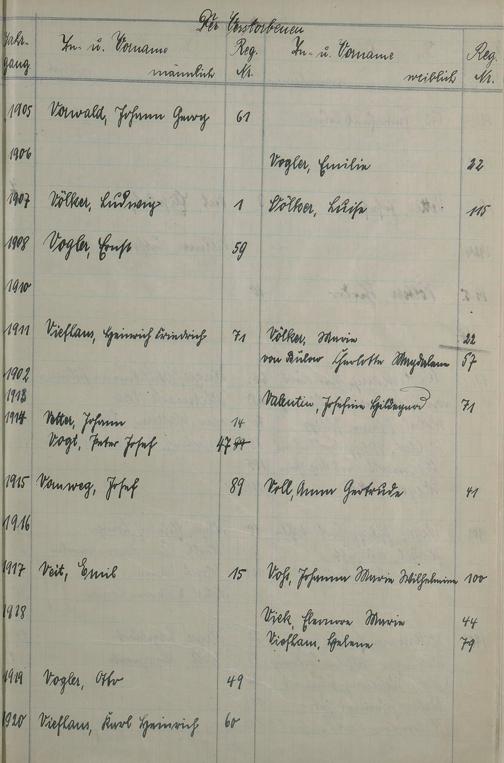 Der Verstorbenen
Jahrgang Zu- u. Vorname männlich Reg. Nr. Zu- u. Vorname weiblich Reg. Nr.
1905 Vorwald, Johann Georg 61
1906 Vogler, Emilie 22
1907 Völker, Ludwig 1 Völker, Luise 115
1908 Vogler, Ernst 59
1910
1911 Viesham, Heinrich Friedrich 71 Völker, Marie 22
von Bülow Charlotte Magdalene 57
1902
1913 Valentin, Josefine Hildegard 71
1914 Vetter, Johann 14
Vogt, Peter Josef 47
1915 Vomweg, Josef 89 Voll, Anna Gertrude 41
1916
1917 Veit, Emil 15 Voß, Johanna Marie Wilhelmine 100
1918 Vieth, Eleonore Marie 44
Viesham, Helene 79
1919 Vogler, Otto 49
1920 Viesham, Karl Heinrich 60